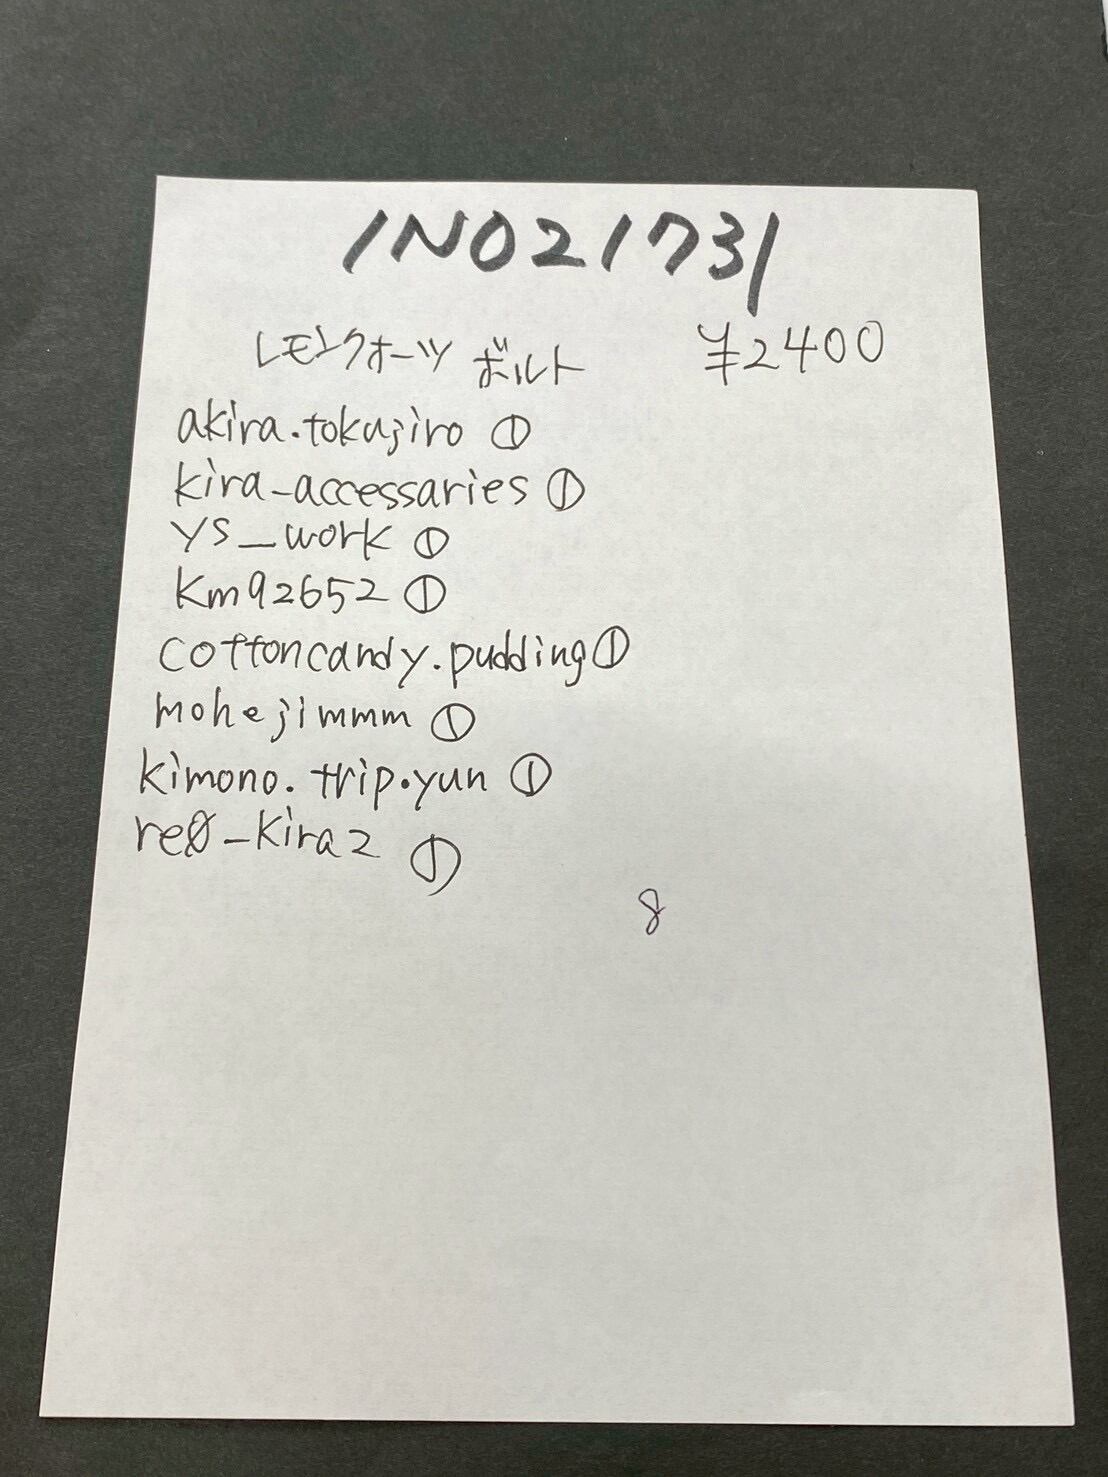 INO21731
レモンクオーツ ボルト ¥2400
akira.tokujiro ①
kira_accessaries ①
ys_work ①
km92652 ①
cottoncandy.pudding ①
mohejimmm ①
kimono.trip.yun ①
re0_kira2 ①
8